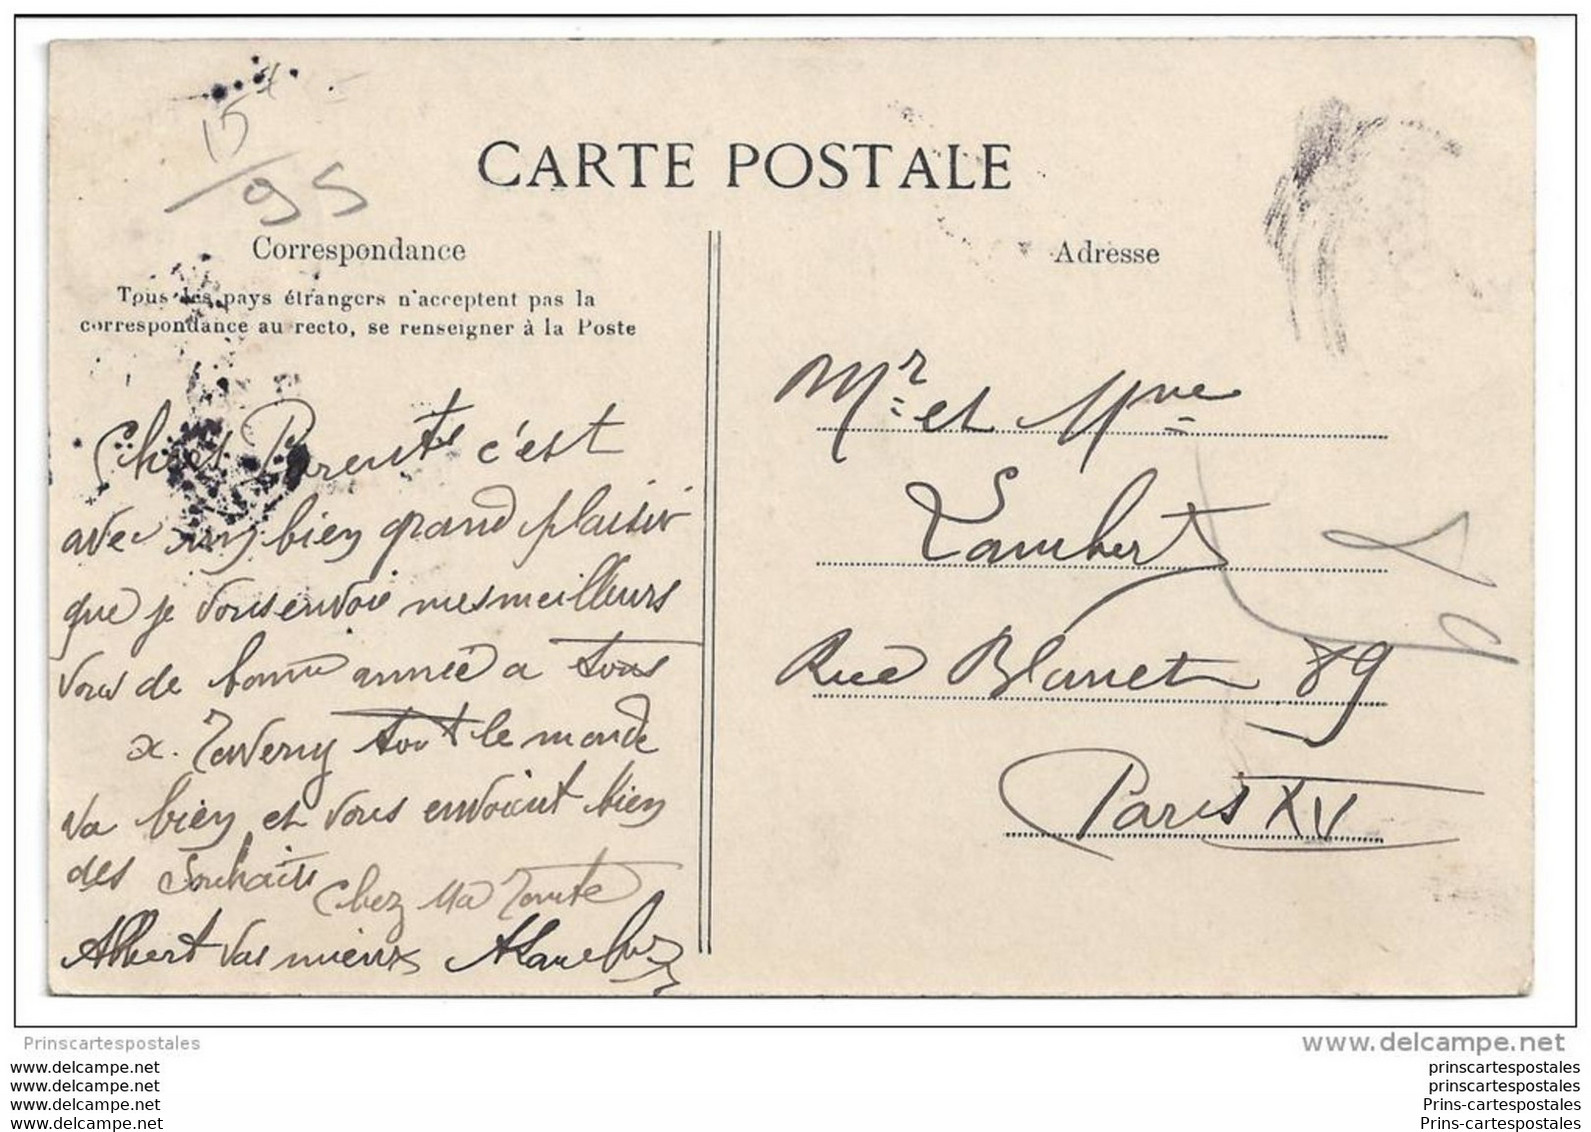 15
/95
CARTE POSTALE
Correspondance
Tous les pays étrangers n'acceptent pas la
correspondance au recto, se renseigner à la Poste
Chers Parents c'est
avec un bien grand plaisir
que je vous envoie mes meilleurs
vous de bonne année a tous
a Taverny tout le monde
va bien et vous envoient bien
des souhaits
chez Ma Tante
Albert vas mieux
Adresse
Mr et Mme
Lambert
Rue Blomet 89
Paris XV
Prinscartespostales
www.delcampe.net
www.delcampe.net
www.delcampe.net
www.delcampe.net
www.delcampe.net
prinscartespostales
prinscartespostales
Prins-cartespostales
Prins-cartespostales